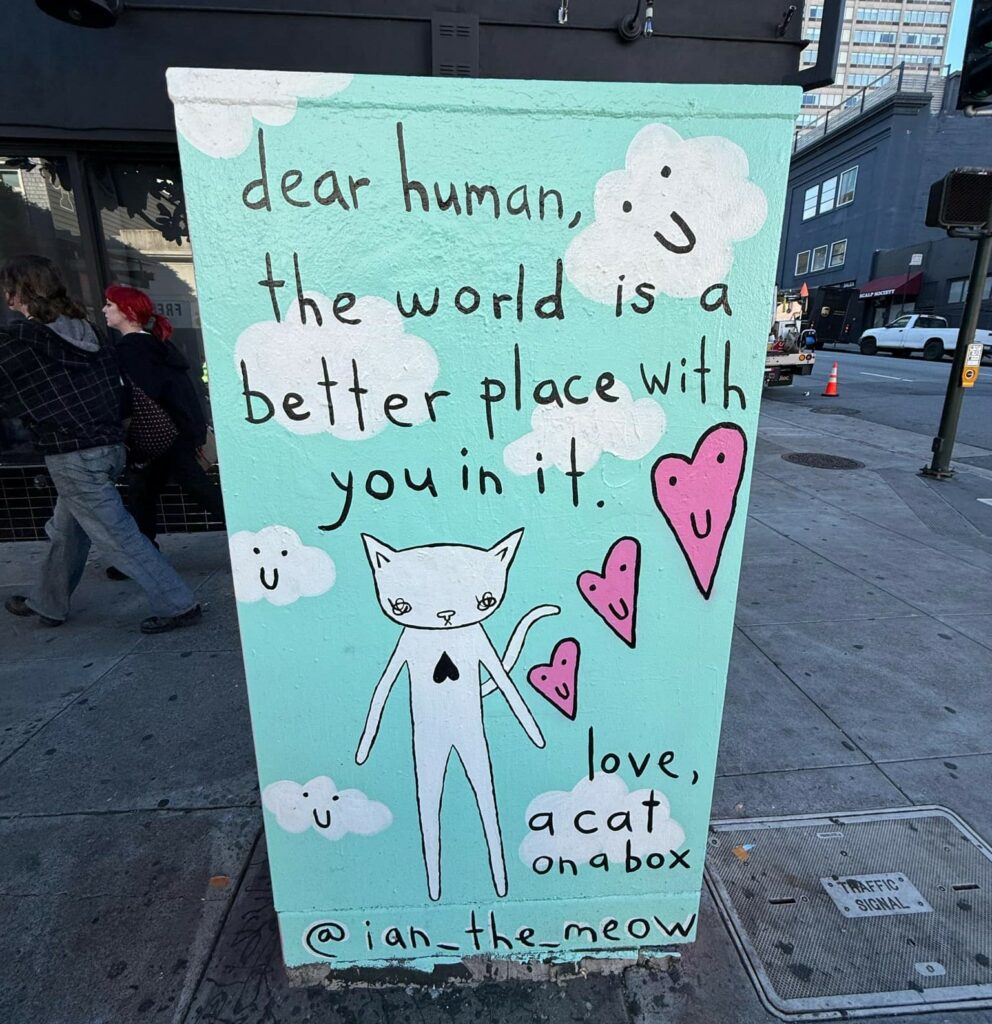 dear human,
the world is a
better place with
you in it.
love,
a cat
on a box
@ian_the_meow
TRAFFIC
SIGNAL
SCALP SOCIETY